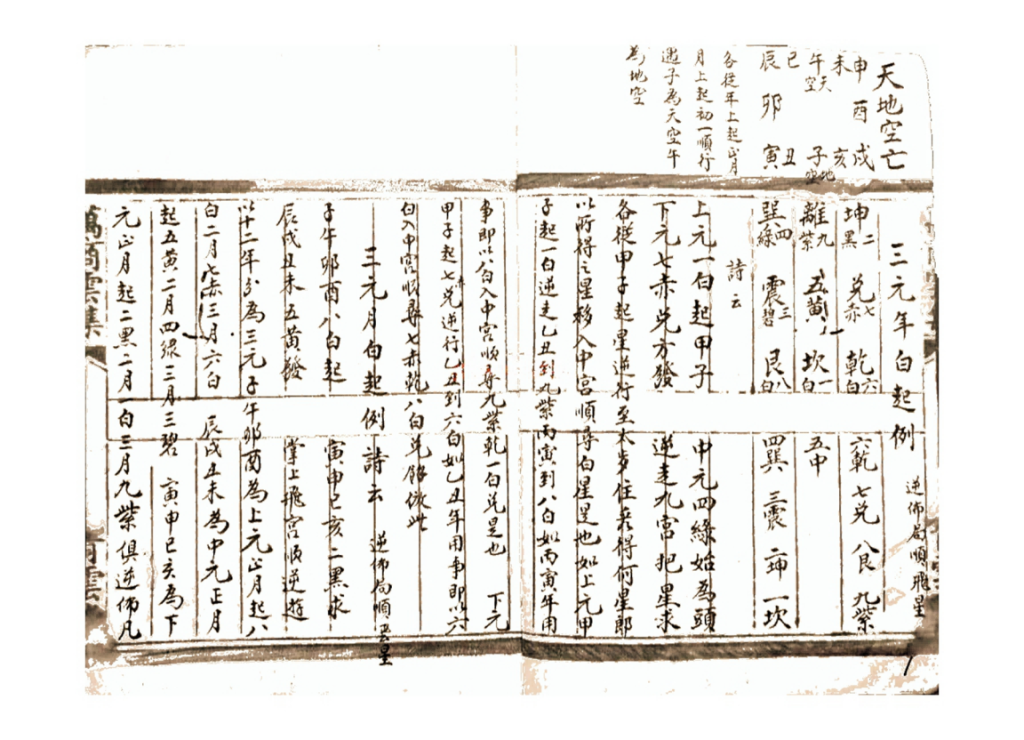 天地空亡
申 酉 戌
未 亥
午天空 子地空
巳 丑
辰 卯 寅
各從年上起正月
月上起初一順行
遇子為天空午
為地空
三元年白起例 逆佈局順飛星
坤二黑 兌七赤 乾六白 六乾 七兌 八艮 九紫
離九紫 五黃 坎一白 五中
巽四綠 震三碧 艮八白 四巽 三震 二坤 一坎
詩云
上元一白起甲子 中元四綠始為頭
下元七赤兌方發 逆走九宮把星求
各從甲子起星逆行至太歲住看得何星即
以所得之星移入中宮順尋白星是也如上元甲
子起一白逆走乙丑到九紫丙寅到八白如丙寅年用
事即以八白入中宮順尋九紫乾一白兌是也 下元
甲子起七兌逆行乙丑到六白如乙丑年用事即以六
白入中宮順尋七赤乾八白兌餘倣此
三元月白起例 詩云 逆佈局順飛星
子午卯酉八白起 寅申巳亥二黑求
辰戌丑未五黃發 掌上飛宮順逆遊
以十二年分為三元子午卯酉為上元正月起八
白二月七赤三月六白 辰戌丑未為中元正月
起五黃二月四綠三月三碧 寅申巳亥為下
元正月起二黑二月一白三月九紫俱逆佈凡